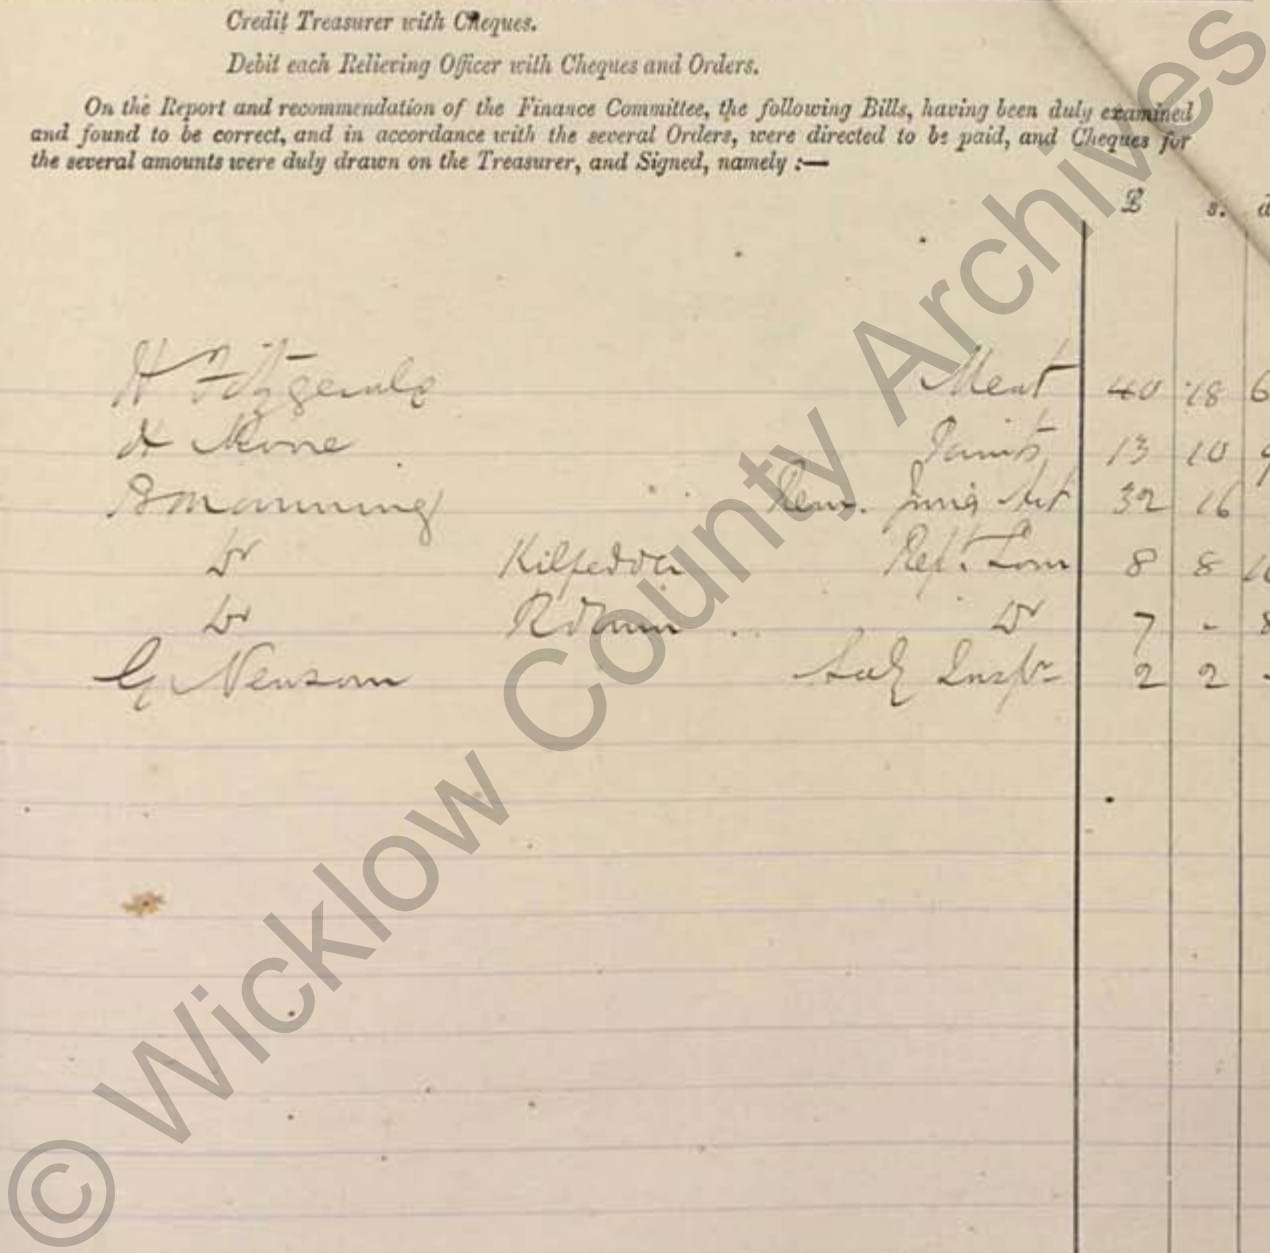 Credit Treasurer with Cheques.
Debit each Relieving Officer with Cheques and Orders.
On the Report and recommendation of the Finance Committee, the following Bills, having been duly examined
and found to be correct, and in accordance with the several Orders, were directed to be paid, and Cheques for
the several amounts were duly drawn on the Treasurer, and Signed, namely :—
£ s. d
H Fitzgerald Meat 40 18 6
H 13 10
Manning 32 16
Do Kilpedder Rept. 8 8
Do Do 7 - 8
G Newsom Insptr 2 2 -
© Wicklow County Archives